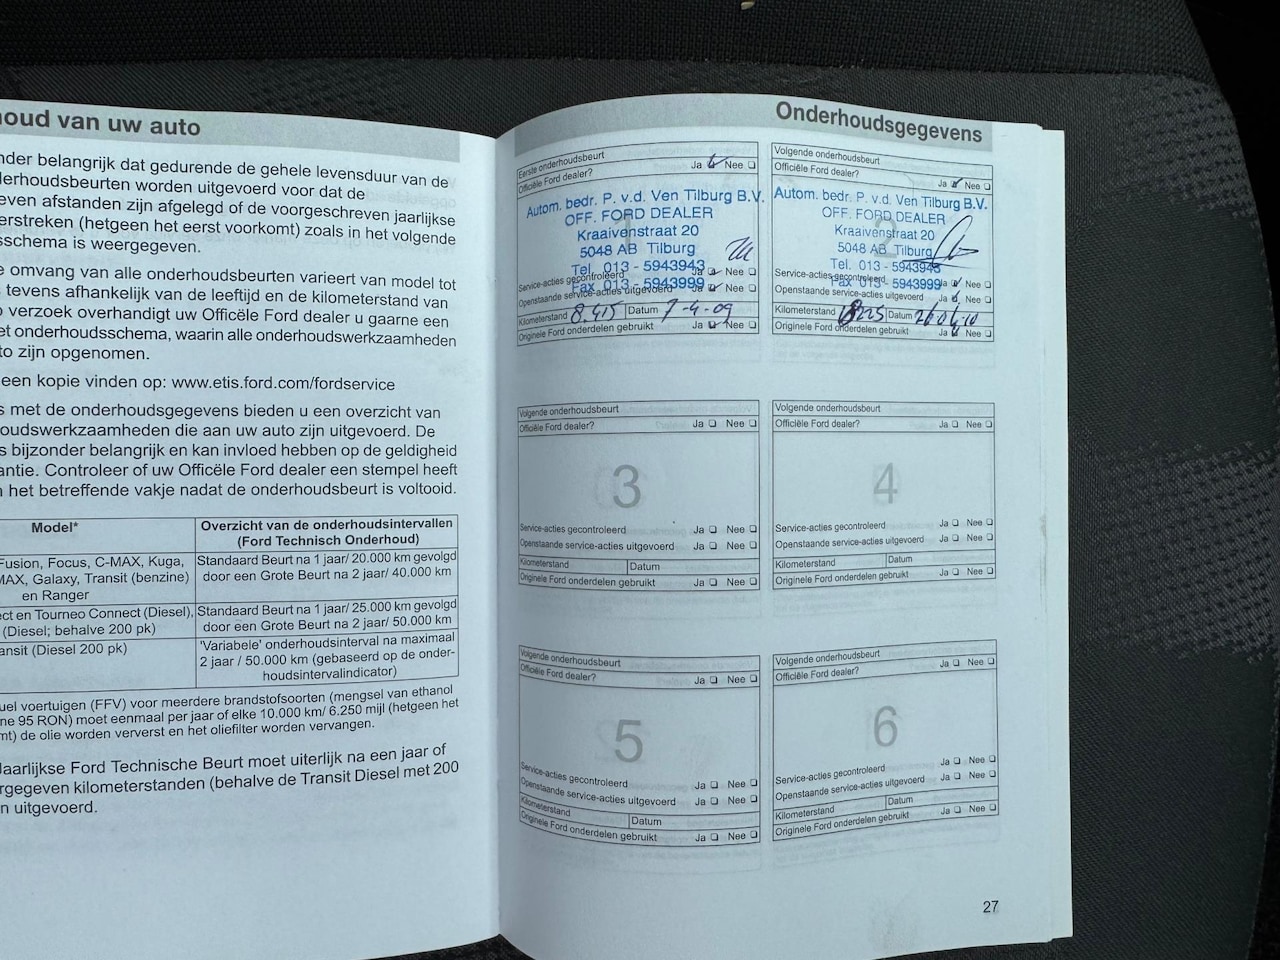 houd van uw auto
nder belangrijk dat gedurende de gehele levensduur van de
derhoudsbeurten worden uitgevoerd voor dat de
even afstanden zijn afgelegd of de voorgeschreven jaarlijkse
erstreken (hetgeen het eerst voorkomt) zoals in het volgende
sschema is weergegeven.
e omvang van alle onderhoudsbeurten varieert van model tot
s tevens afhankelijk van de leeftijd en de kilometerstand van
o verzoek overhandigt uw Officële Ford dealer u gaarne een
et onderhoudsschema, waarin alle onderhoudswerkzaamheden
to zijn opgenomen.
een kopie vinden op: www.etis.ford.com/fordservice
s met de onderhoudsgegevens bieden u een overzicht van
oudswerkzaamheden die aan uw auto zijn uitgevoerd. De
s bijzonder belangrijk en kan invloed hebben op de geldigheid
antie. Controleer of uw Officële Ford dealer een stempel heeft
n het betreffende vakje nadat de onderhoudsbeurt is voltooid.
Model* Overzicht van de onderhoudsintervallen
(Ford Technisch Onderhoud)
Fusion, Focus, C-MAX, Kuga, Standaard Beurt na 1 jaar/ 20.000 km gevolgd
MAX, Galaxy, Transit (benzine) door een Grote Beurt na 2 jaar/ 40.000 km
en Ranger
ect en Tourneo Connect (Diesel), Standaard Beurt na 1 jaar/ 25.000 km gevolgd
(Diesel; behalve 200 pk) door een Grote Beurt na 2 jaar/ 50.000 km
ansit (Diesel 200 pk) 'Variabele' onderhoudsinterval na maximaal
2 jaar / 50.000 km (gebaseerd op de onder-
houdsintervalindicator)
uel voertuigen (FFV) voor meerdere brandstofsoorten (mengsel van ethanol
ne 95 RON) moet eenmaal per jaar of elke 10.000 km/ 6.250 mijl (hetgeen het
mt) de olie worden ververst en het oliefilter worden vervangen.
Jaarlijkse Ford Technische Beurt moet uiterlijk na een jaar of
rgegeven kilometerstanden (behalve de Transit Diesel met 200
n uitgevoerd.
Onderhoudsgegevens
Eerste onderhoudsbeurt
Officiële Ford dealer? Ja Nee
Autom. bedr. P. v.d. Ven Tilburg B.V.
OFF. FORD DEALER
Kraaivenstraat 20
5048 AB Tilburg
Tel. 013 - 5943943
Service-acties gecontroleerd Ja Nee
Fax 013 - 5943999
Openstaande service-acties uitgevoerd Ja Nee
Kilometerstand 8.415 Datum 7-4-09
Originele Ford onderdelen gebruikt Ja Nee
Volgende onderhoudsbeurt
Officiële Ford dealer? Ja Nee
Autom. bedr. P. v.d. Ven Tilburg B.V.
OFF. FORD DEALER
2
Kraaivenstraat 20
5048 AB Tilburg
Tel. 013 - 5943943
Service-acties gecontroleerd Ja Nee
Fax 013 - 5943999
Openstaande service-acties uitgevoerd Ja Nee
Kilometerstand Datum
Originele Ford onderdelen gebruikt Ja Nee
Volgende onderhoudsbeurt
Officiële Ford dealer? Ja Nee
3
Service-acties gecontroleerd Ja Nee
Openstaande service-acties uitgevoerd Ja Nee
Kilometerstand Datum
Originele Ford onderdelen gebruikt Ja Nee
Volgende onderhoudsbeurt
Officiële Ford dealer? Ja Nee
4
Service-acties gecontroleerd Ja Nee
Openstaande service-acties uitgevoerd Ja Nee
Kilometerstand Datum
Originele Ford onderdelen gebruikt Ja Nee
Volgende onderhoudsbeurt
Officiële Ford dealer? Ja Nee
5
Service-acties gecontroleerd Ja Nee
Openstaande service-acties uitgevoerd Ja Nee
Kilometerstand Datum
Originele Ford onderdelen gebruikt Ja Nee
Volgende onderhoudsbeurt
Officiële Ford dealer? Ja Nee
6
Service-acties gecontroleerd Ja Nee
Openstaande service-acties uitgevoerd Ja Nee
Kilometerstand Datum
Originele Ford onderdelen gebruikt Ja Nee
27